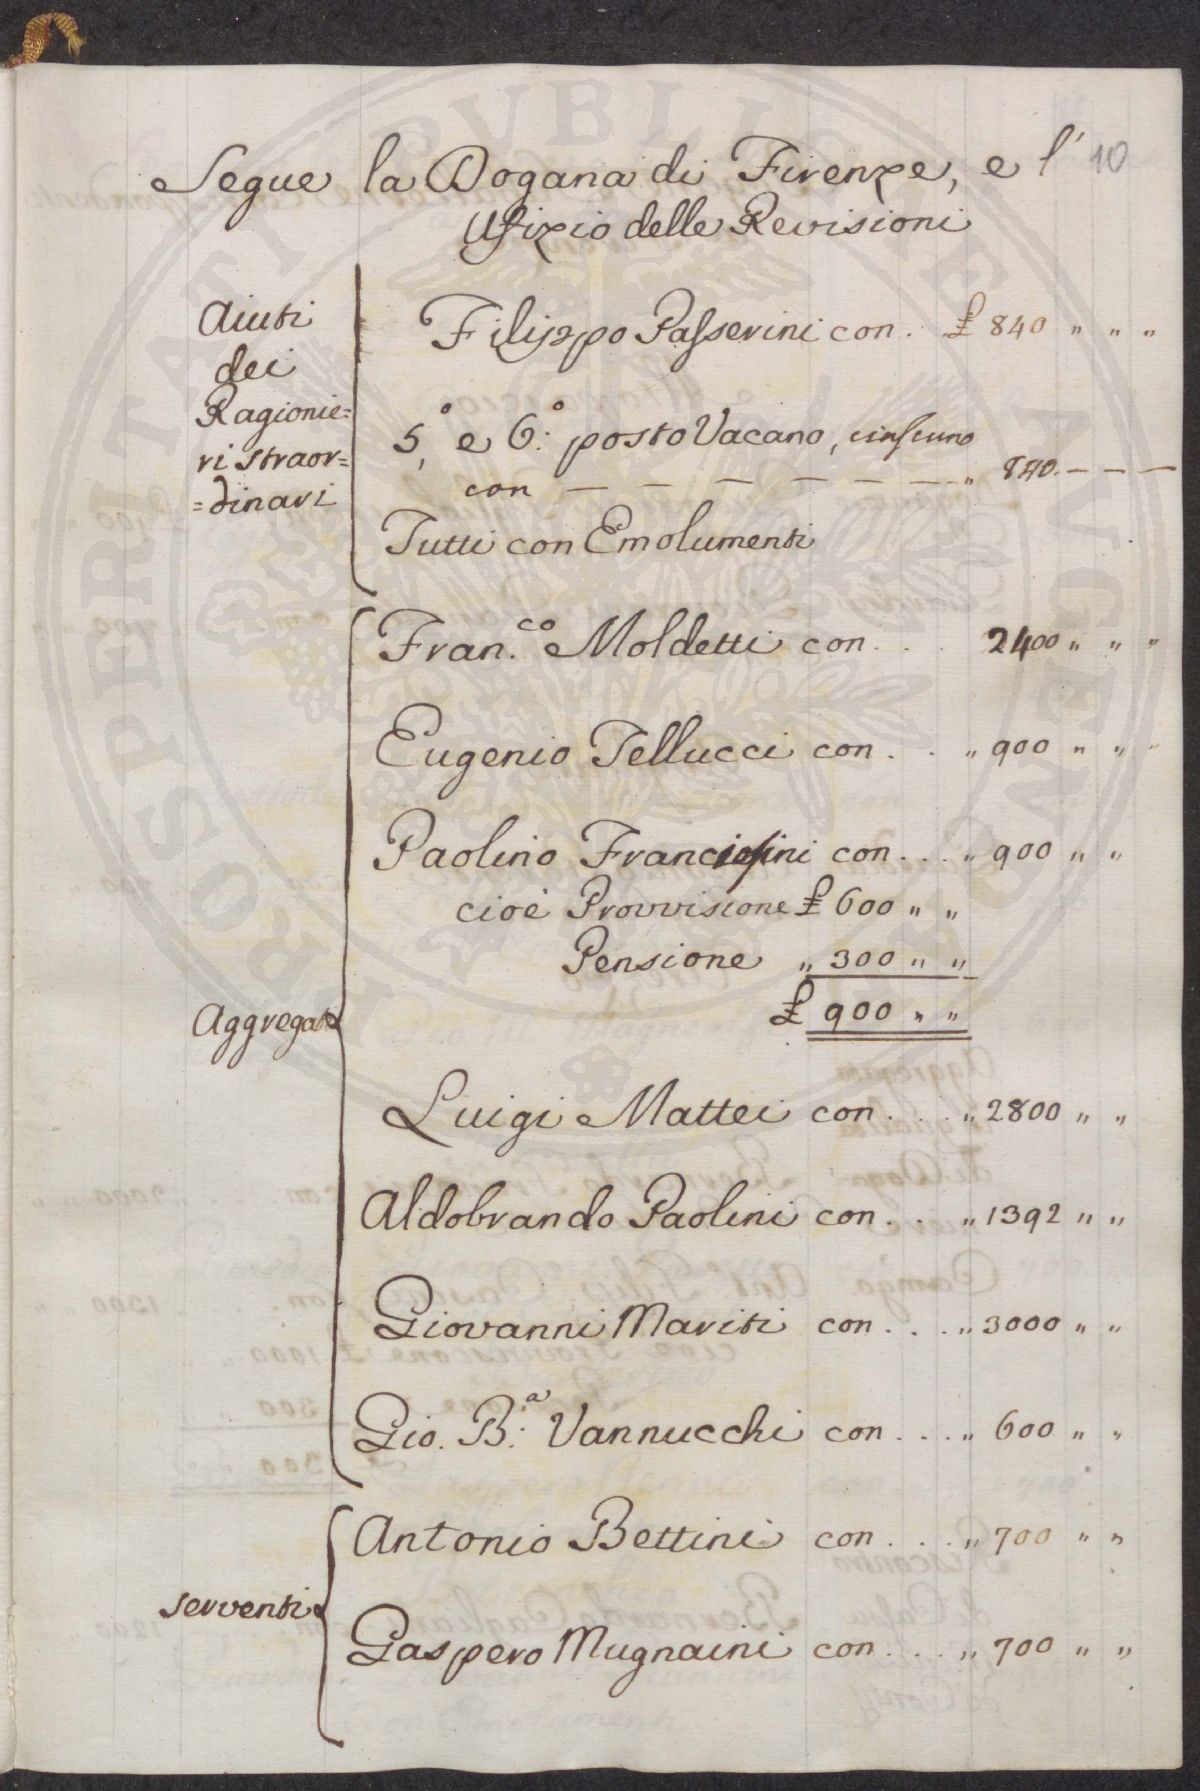 Segue la Dogana di Firenze, e l' 10
Ufizio delle Revisioni
Aiuti
dei
Ragionie=
ri straor=
=dinari
Filippo Passerini con . £ 840 " " "
5,° e 6:° posto Vacano, ciascuno
con — — — — — — — " 840. — — —
Tutti con Emolumenti
Aggregati
Fran.co Moldetti con . . . 2400 " " "
Eugenio Tellucci con . . " 900 " " "
Paolino Franciosini con . . . " 900 " "
cioè Provvisione £ 600 " "
Pensione " 300 " "
£ 900 " "
Luigi Mattei con . . . " 2800 " "
Aldobrando Paolini con . . " 1392 " "
Giovanni Mariti con . . . " 3000 " "
Gio. B:a Vannucchi con . . . " 600 " "
Serventi
Antonio Bettini con . . . " 700 " "
Gaspero Mugnaini con . . . " 700 " "
PROSPERITATI PUBLICAE AUGENDAE